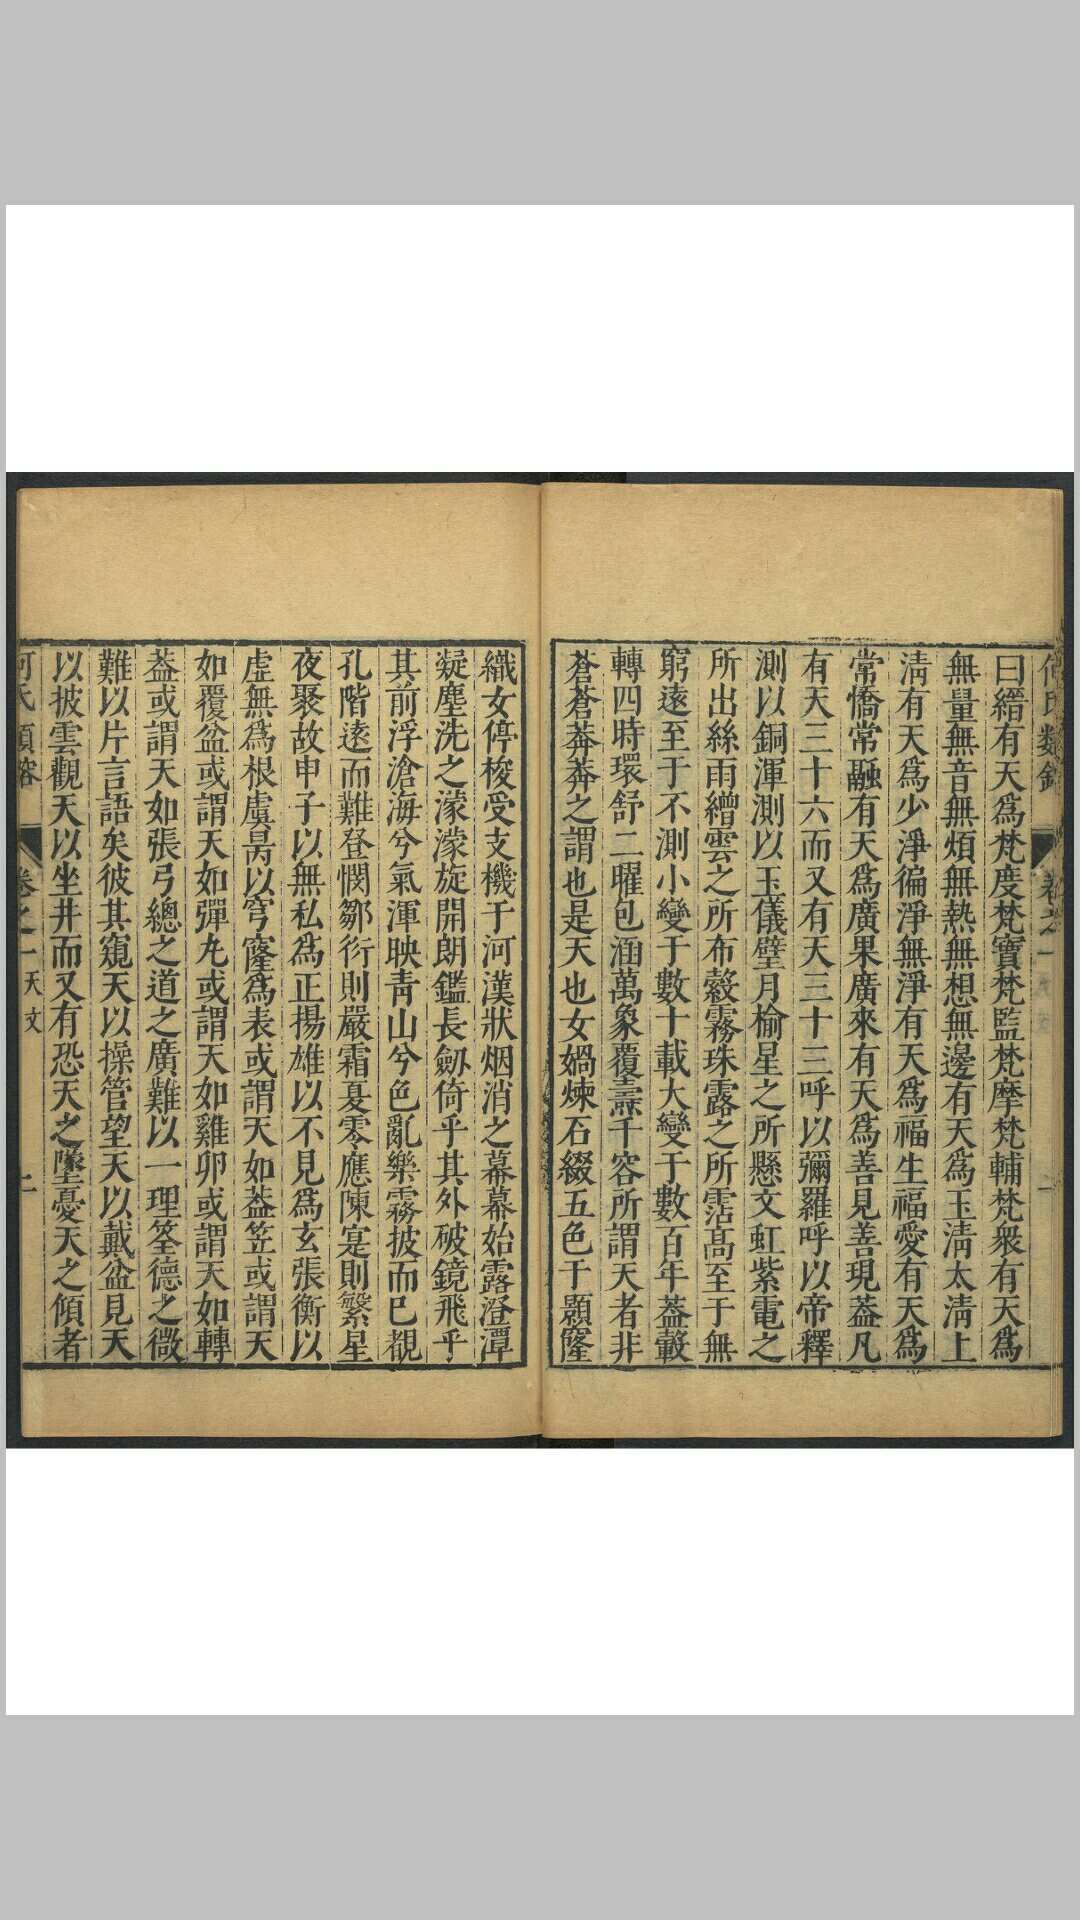 何氏類鎔 卷之一 一
曰縉有天爲梵度梵寶梵監梵摩梵輔梵衆有天爲
無量無音無煩無熱無想無邊有天爲玉淸太淸上
淸有天爲少淨徧淨無淨有天爲福生福愛有天爲
常憍常融有天爲廣果廣來有天爲善見善現葢凡
有天三十六而又有天三十三呼以彌羅呼以帝釋
測以銅渾測以玉儀璧月榆星之所懸文虹紫電之
所出絲雨繒雲之所布縠霧珠露之所霑高至于無
窮遠至于不測小變于數十載大變于數百年葢轂
轉四時環舒二曜包涵萬象覆壽千容所謂天者非
蒼蒼莽莽之謂也是天也女媧煉石綴五色于顥窿
織女停梭受支機于河漢狀烟消之幕幕始露澄潭
凝塵洗之濛濛旋開朗鑑長劒倚乎其外破鏡飛乎
其前浮滄海兮氣渾映靑山兮色亂樂霧披而已覩
孔階遠而難登憫鄒衍則嚴霜夏零應陳寔則繁星
夜聚故申子以無私爲正揚雄以不見爲玄張衡以
虛無爲根虞昺以穹窿爲表或謂天如葢笠或謂天
如覆盆或謂天如彈丸或謂天如雞卵或謂天如轉
葢或謂天如張弓總之道之廣難以一理筌德之微
難以片言語矣彼其窺天以操管望天以戴盆見天
以披雲觀天以坐井而又有恐天之墜憂天之傾者
何氏類鎔 卷之一 天文 二